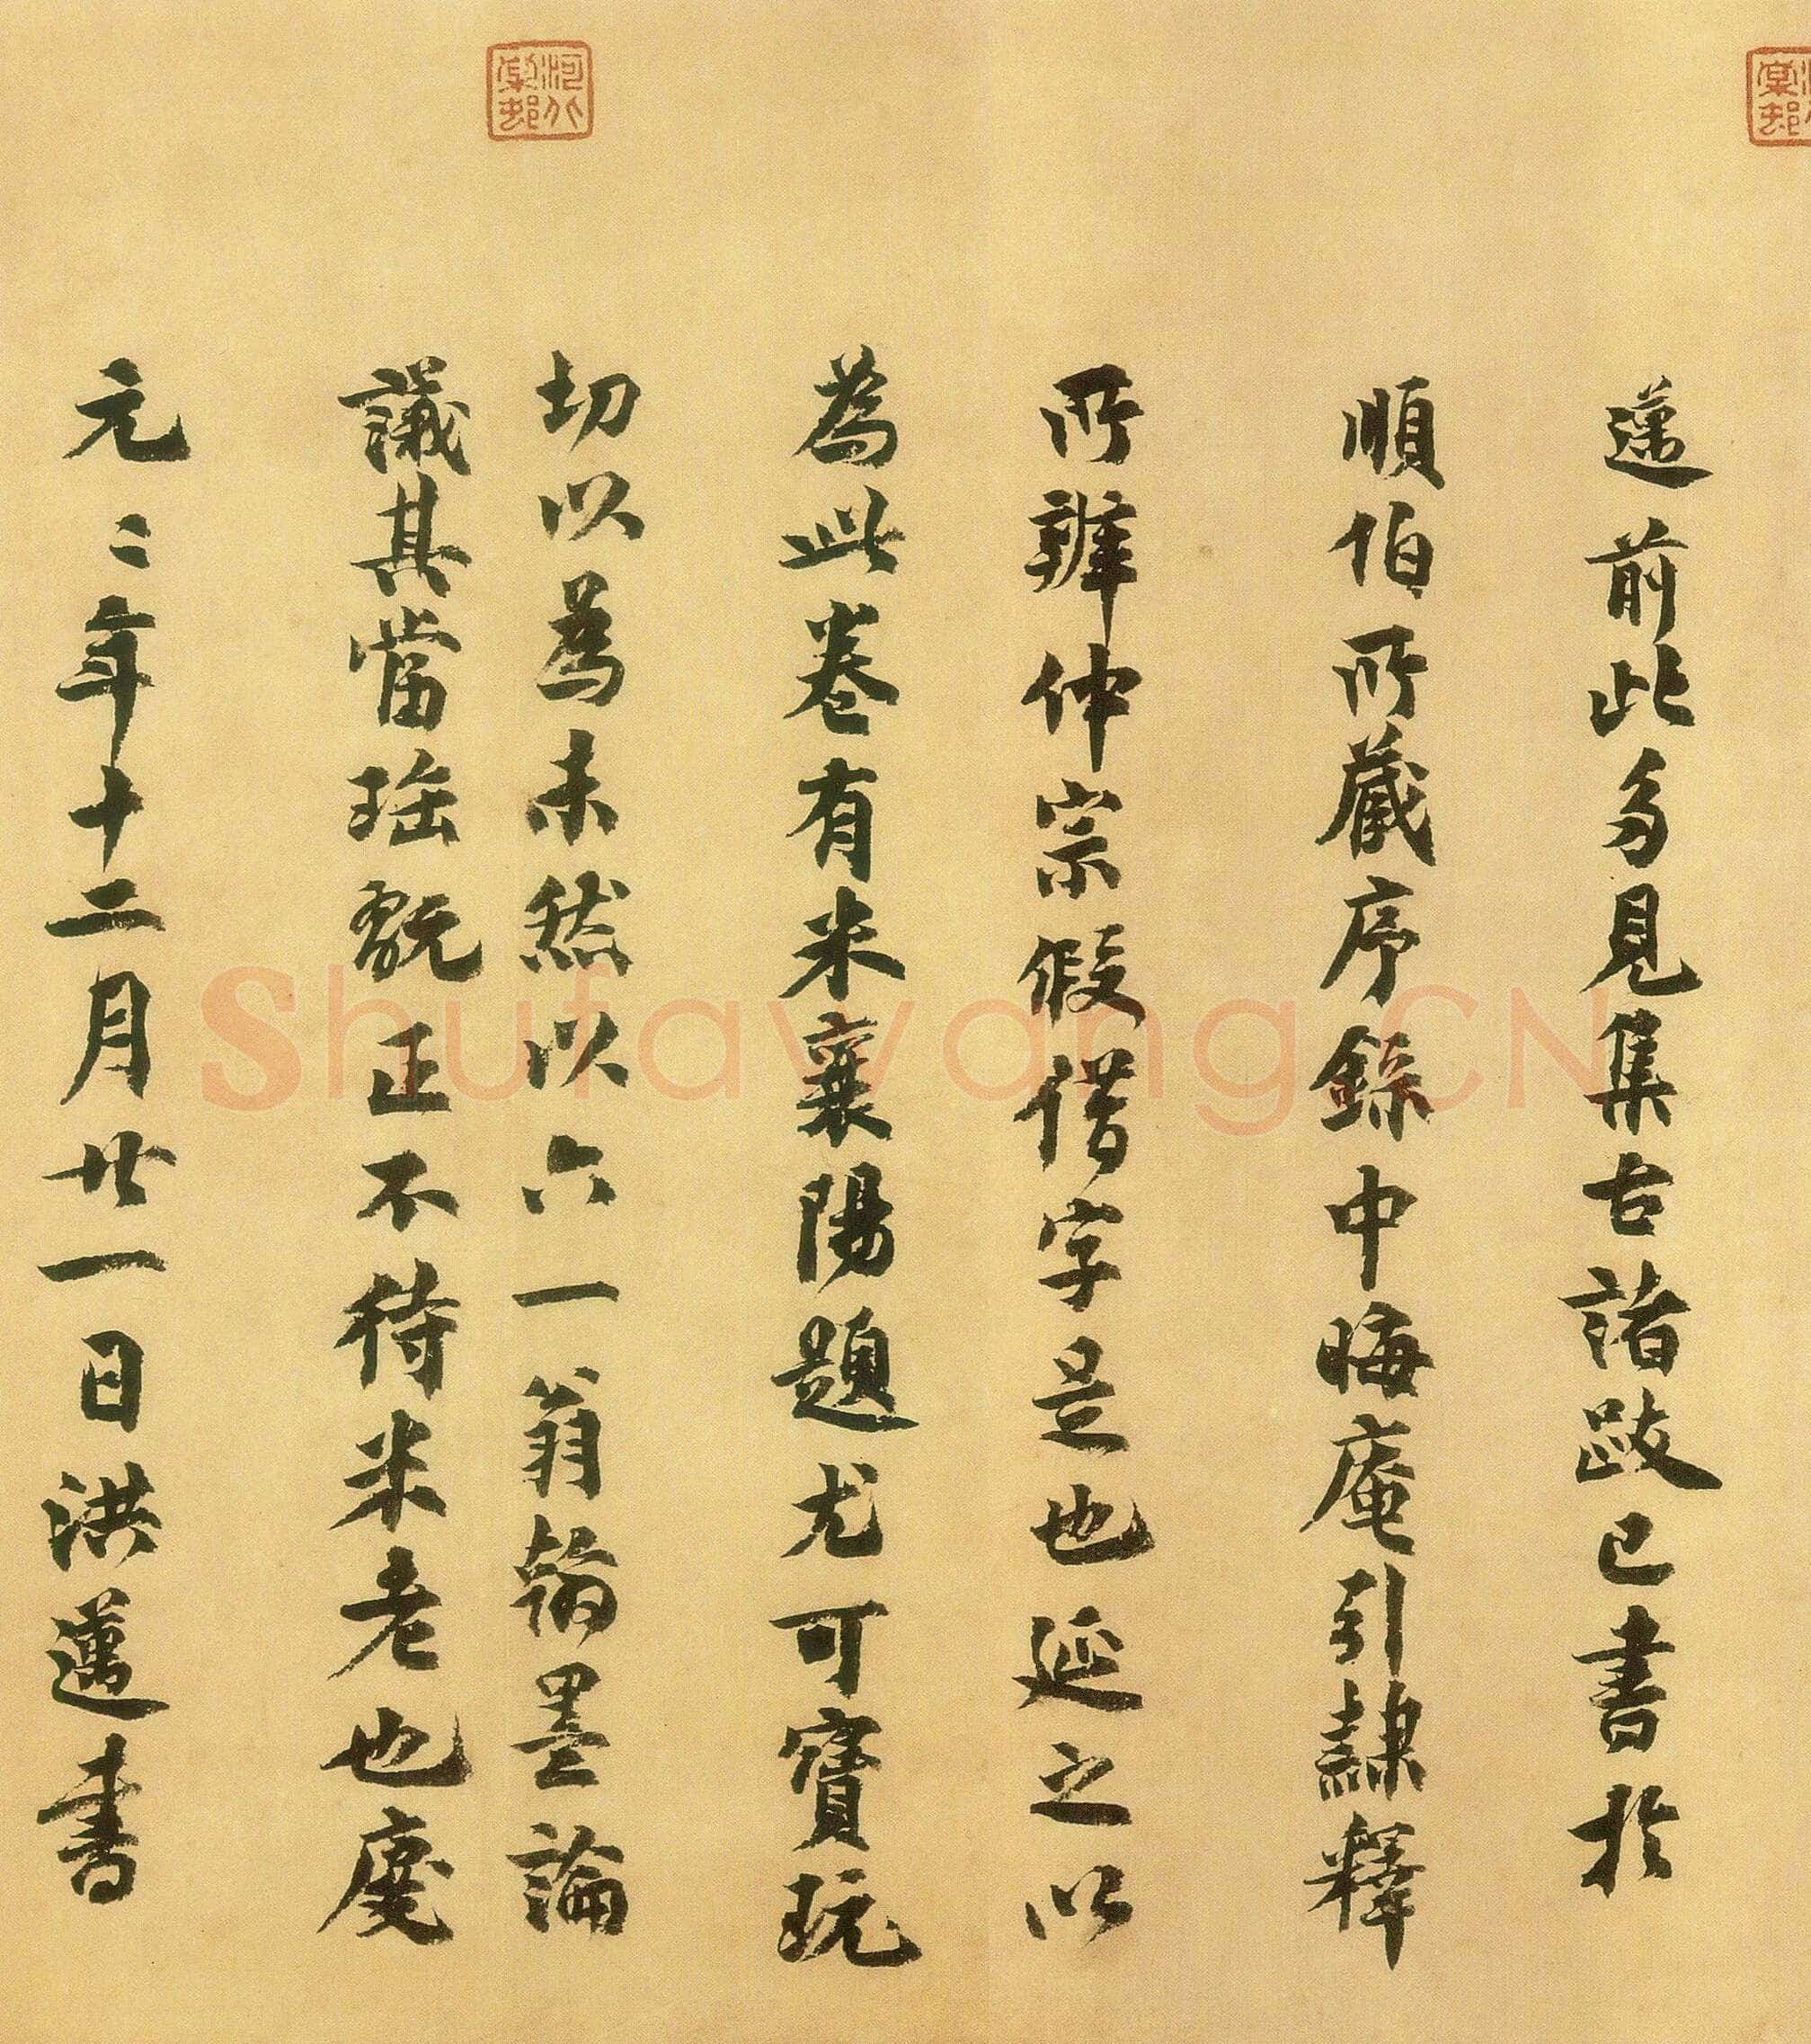 邁前此多見集古諸跋已書於
順伯所藏序錄中晦庵引隸釋
所辨仲宗假借字是也延之以
為此卷有米襄陽題尤可寶玩
切以為未然以六一翁翰墨論
議其當瑤翫正不待米老也慶
元二年十二月廿一日洪邁書
Shufawang.CN